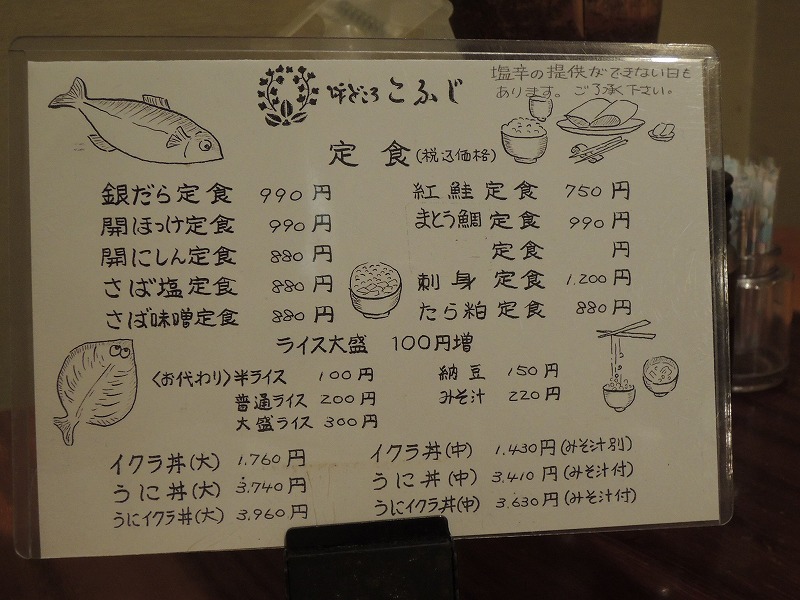 味どころ こふじ
塩辛の提供ができない日も
あります。ご了承下さい。
定食(税込価格)
銀だら定食 990円
開ほっけ定食 990円
開にしん定食 880円
さば塩定食 880円
さば味噌定食 880円
紅鮭定食 750円
まとう鯛定食 990円
定食 円
刺身定食 1,200円
たら粕定食 880円
ライス大盛 100円増
〈お代わり〉半ライス 100円
普通ライス 200円
大盛ライス 300円
納豆 150円
みそ汁 220円
イクラ丼(大) 1,760円
うに丼(大) 3,740円
うにイクラ丼(大) 3,960円
イクラ丼(中) 1,430円(みそ汁別)
うに丼(中) 3,410円(みそ汁付)
うにイクラ丼(中) 3,630円(みそ汁付)